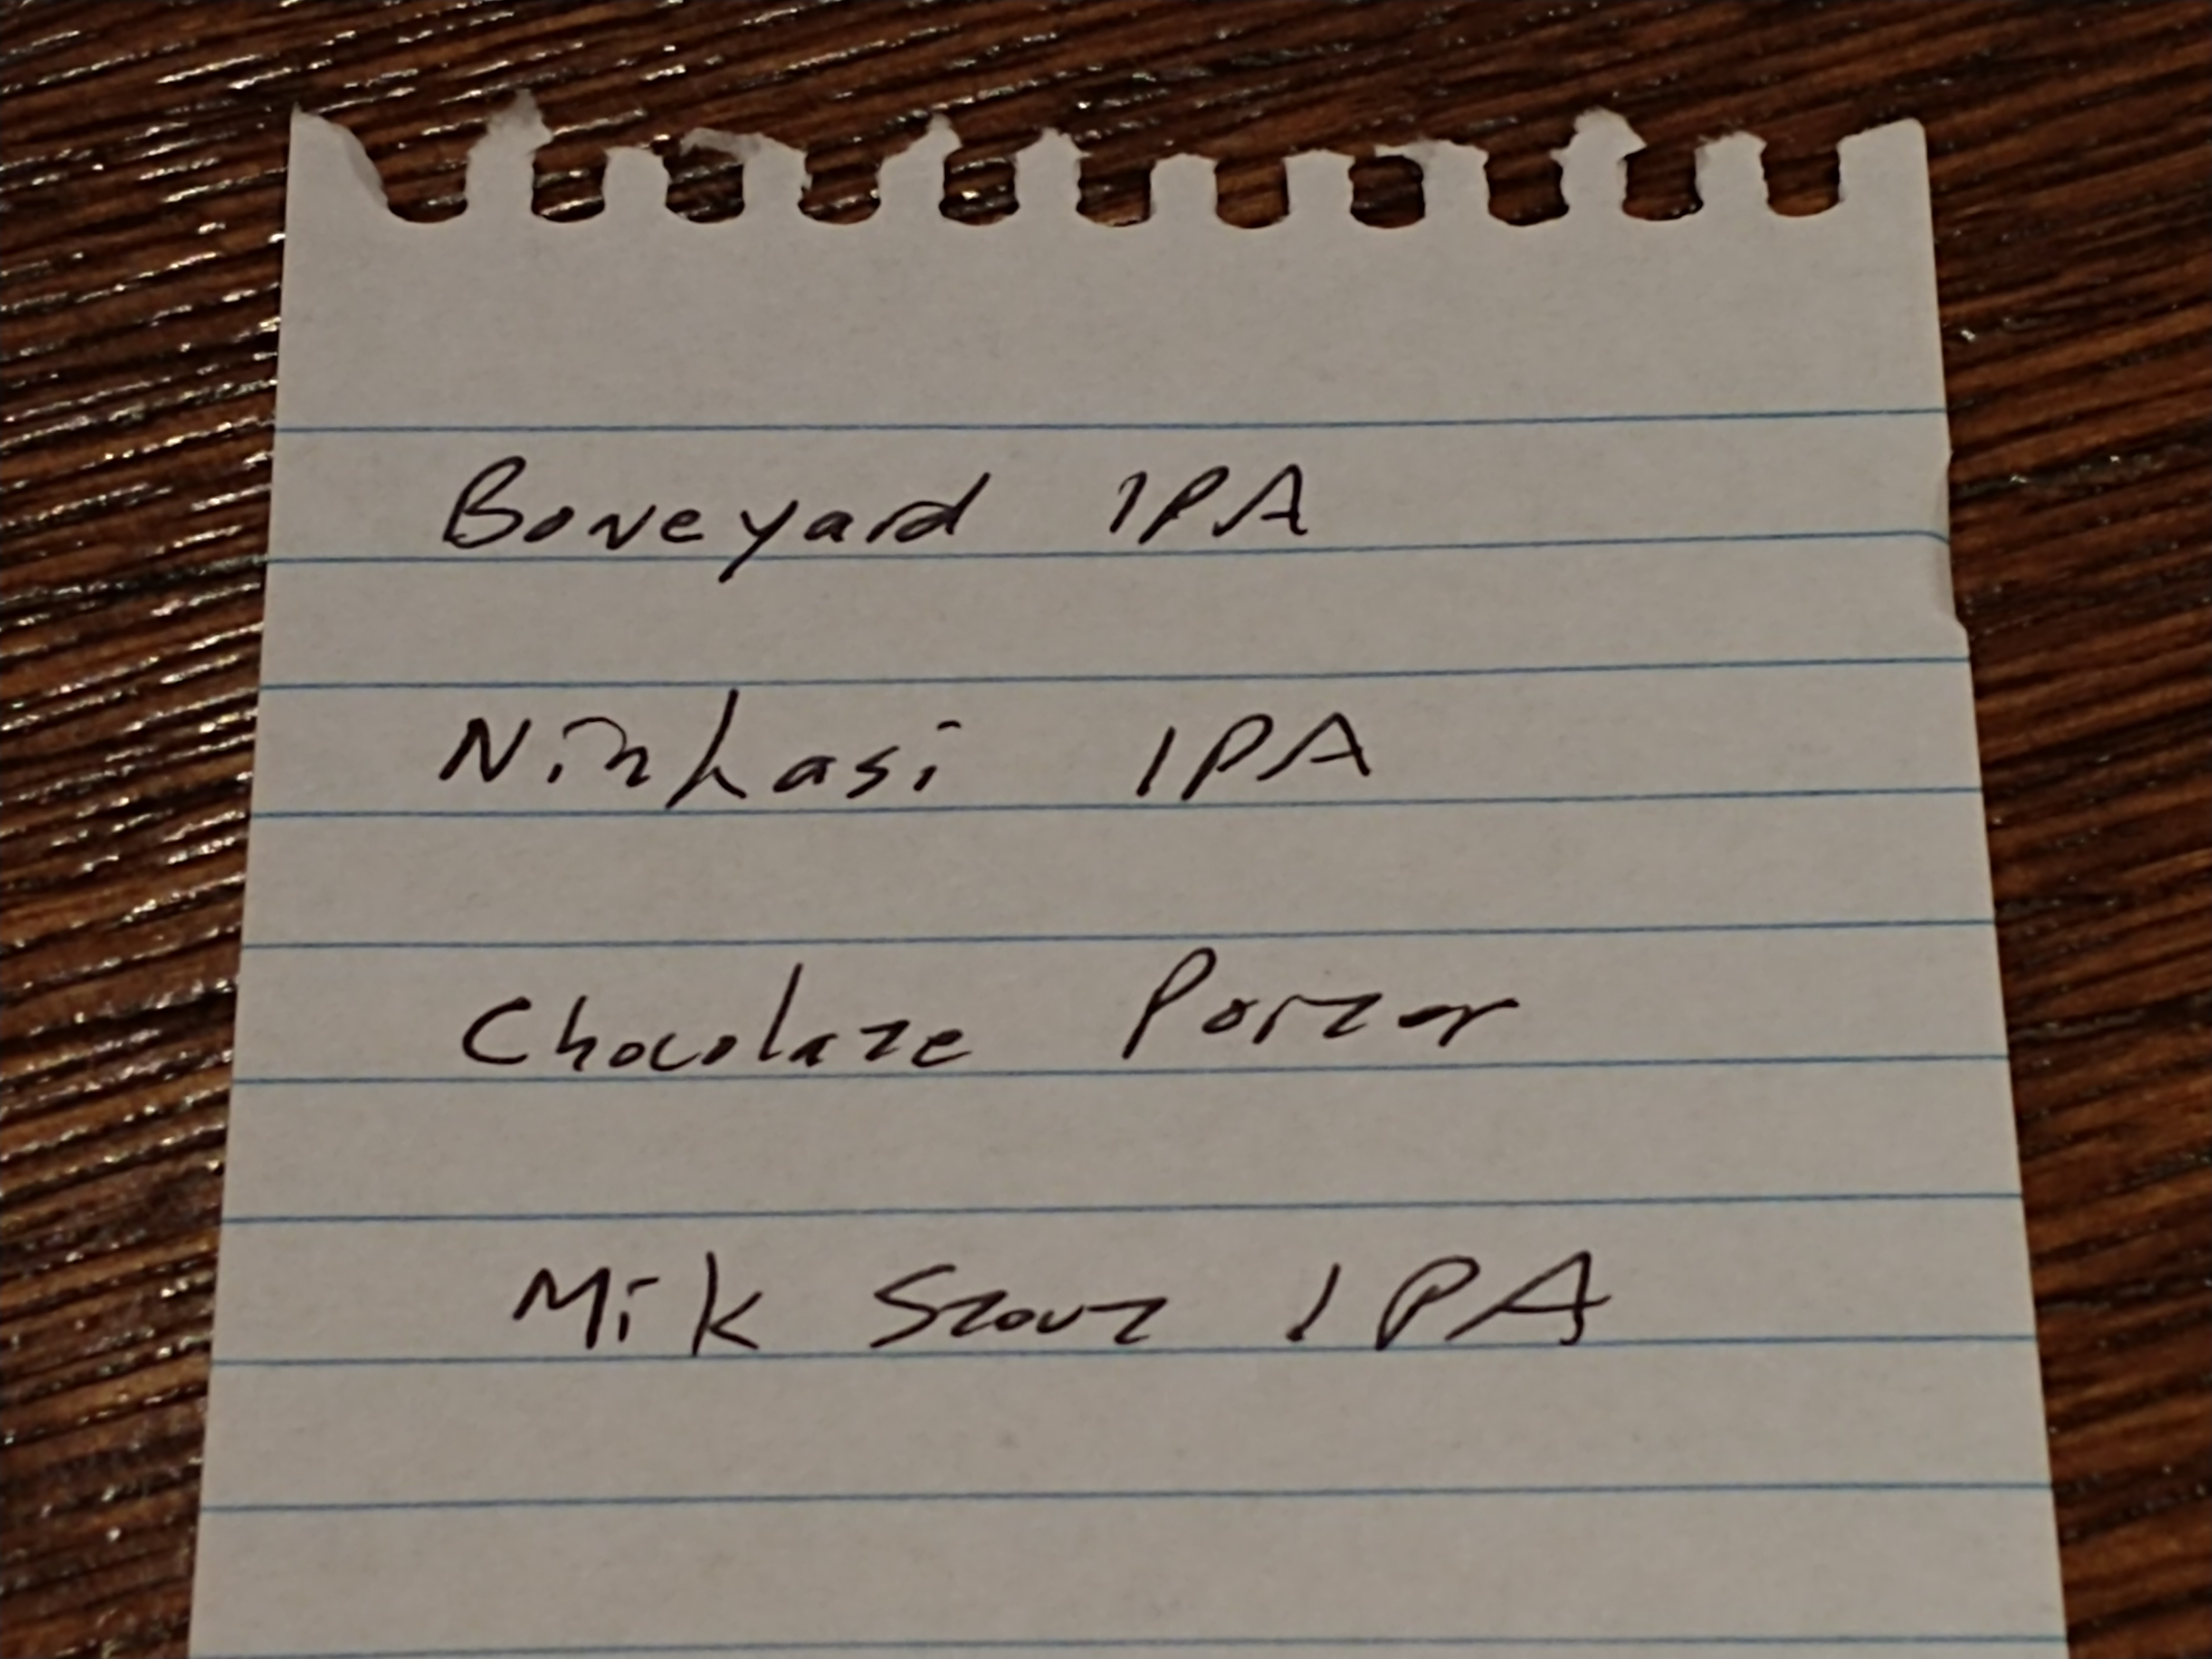 Boneyard IPA
Ninkasi IPA
Chocolate Porter
Mik Stout IPA